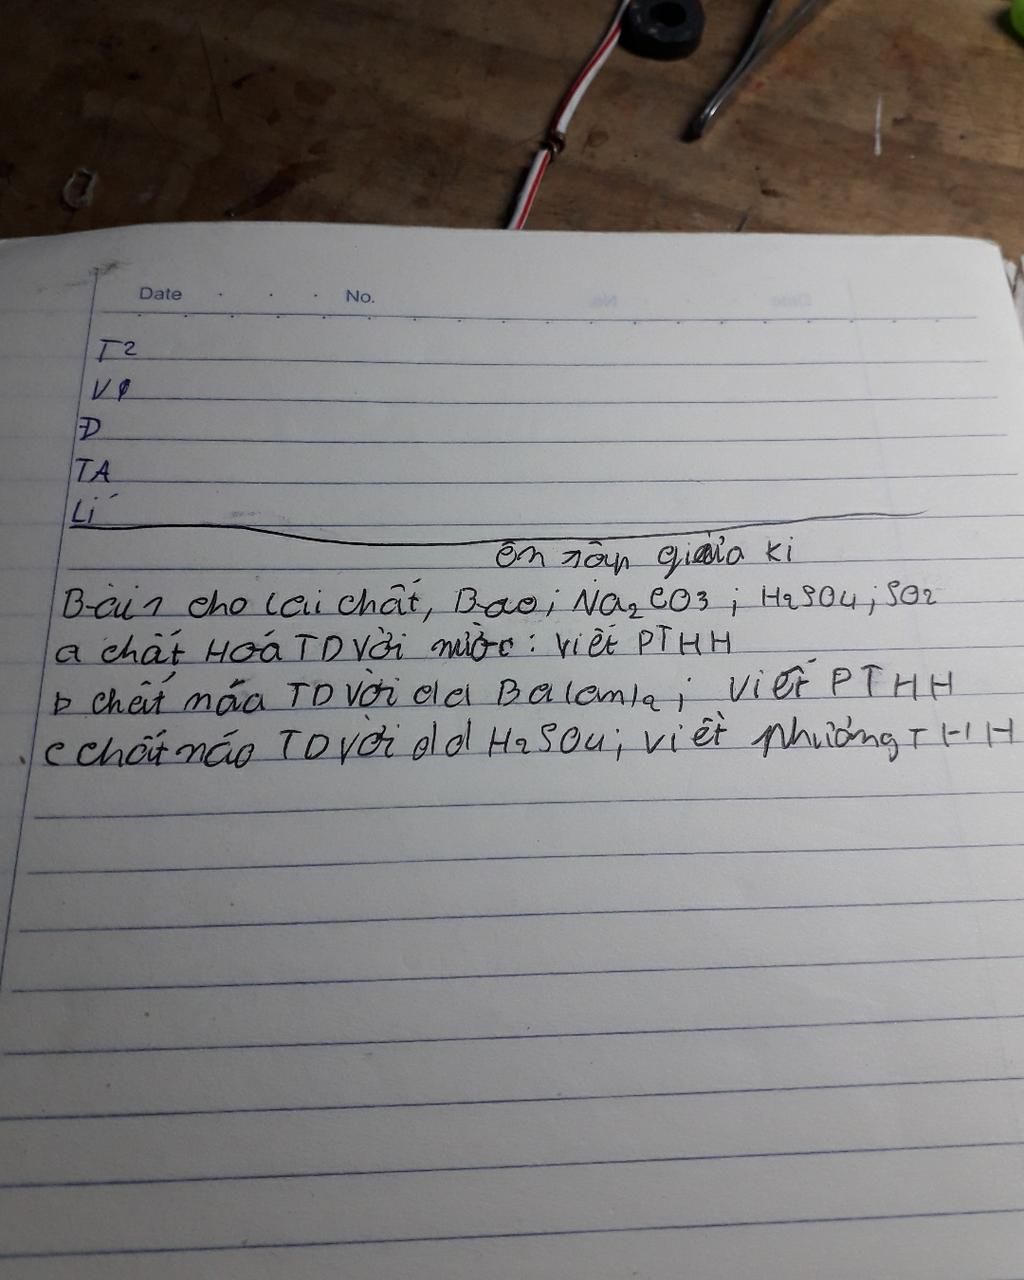 Date . . . No.
T2
Đ
TA
Lí
ôn tập giữa kì
Bài 1 cho cái chất, Bao; Na2CO3; H2SO4; SO2
a chất Hoá TD với nước: viết PTHH
b chất náo TD với dd Ba(OH)2; viết PTHH
c chất náo TD với dd H2SO4; viết phướng THH